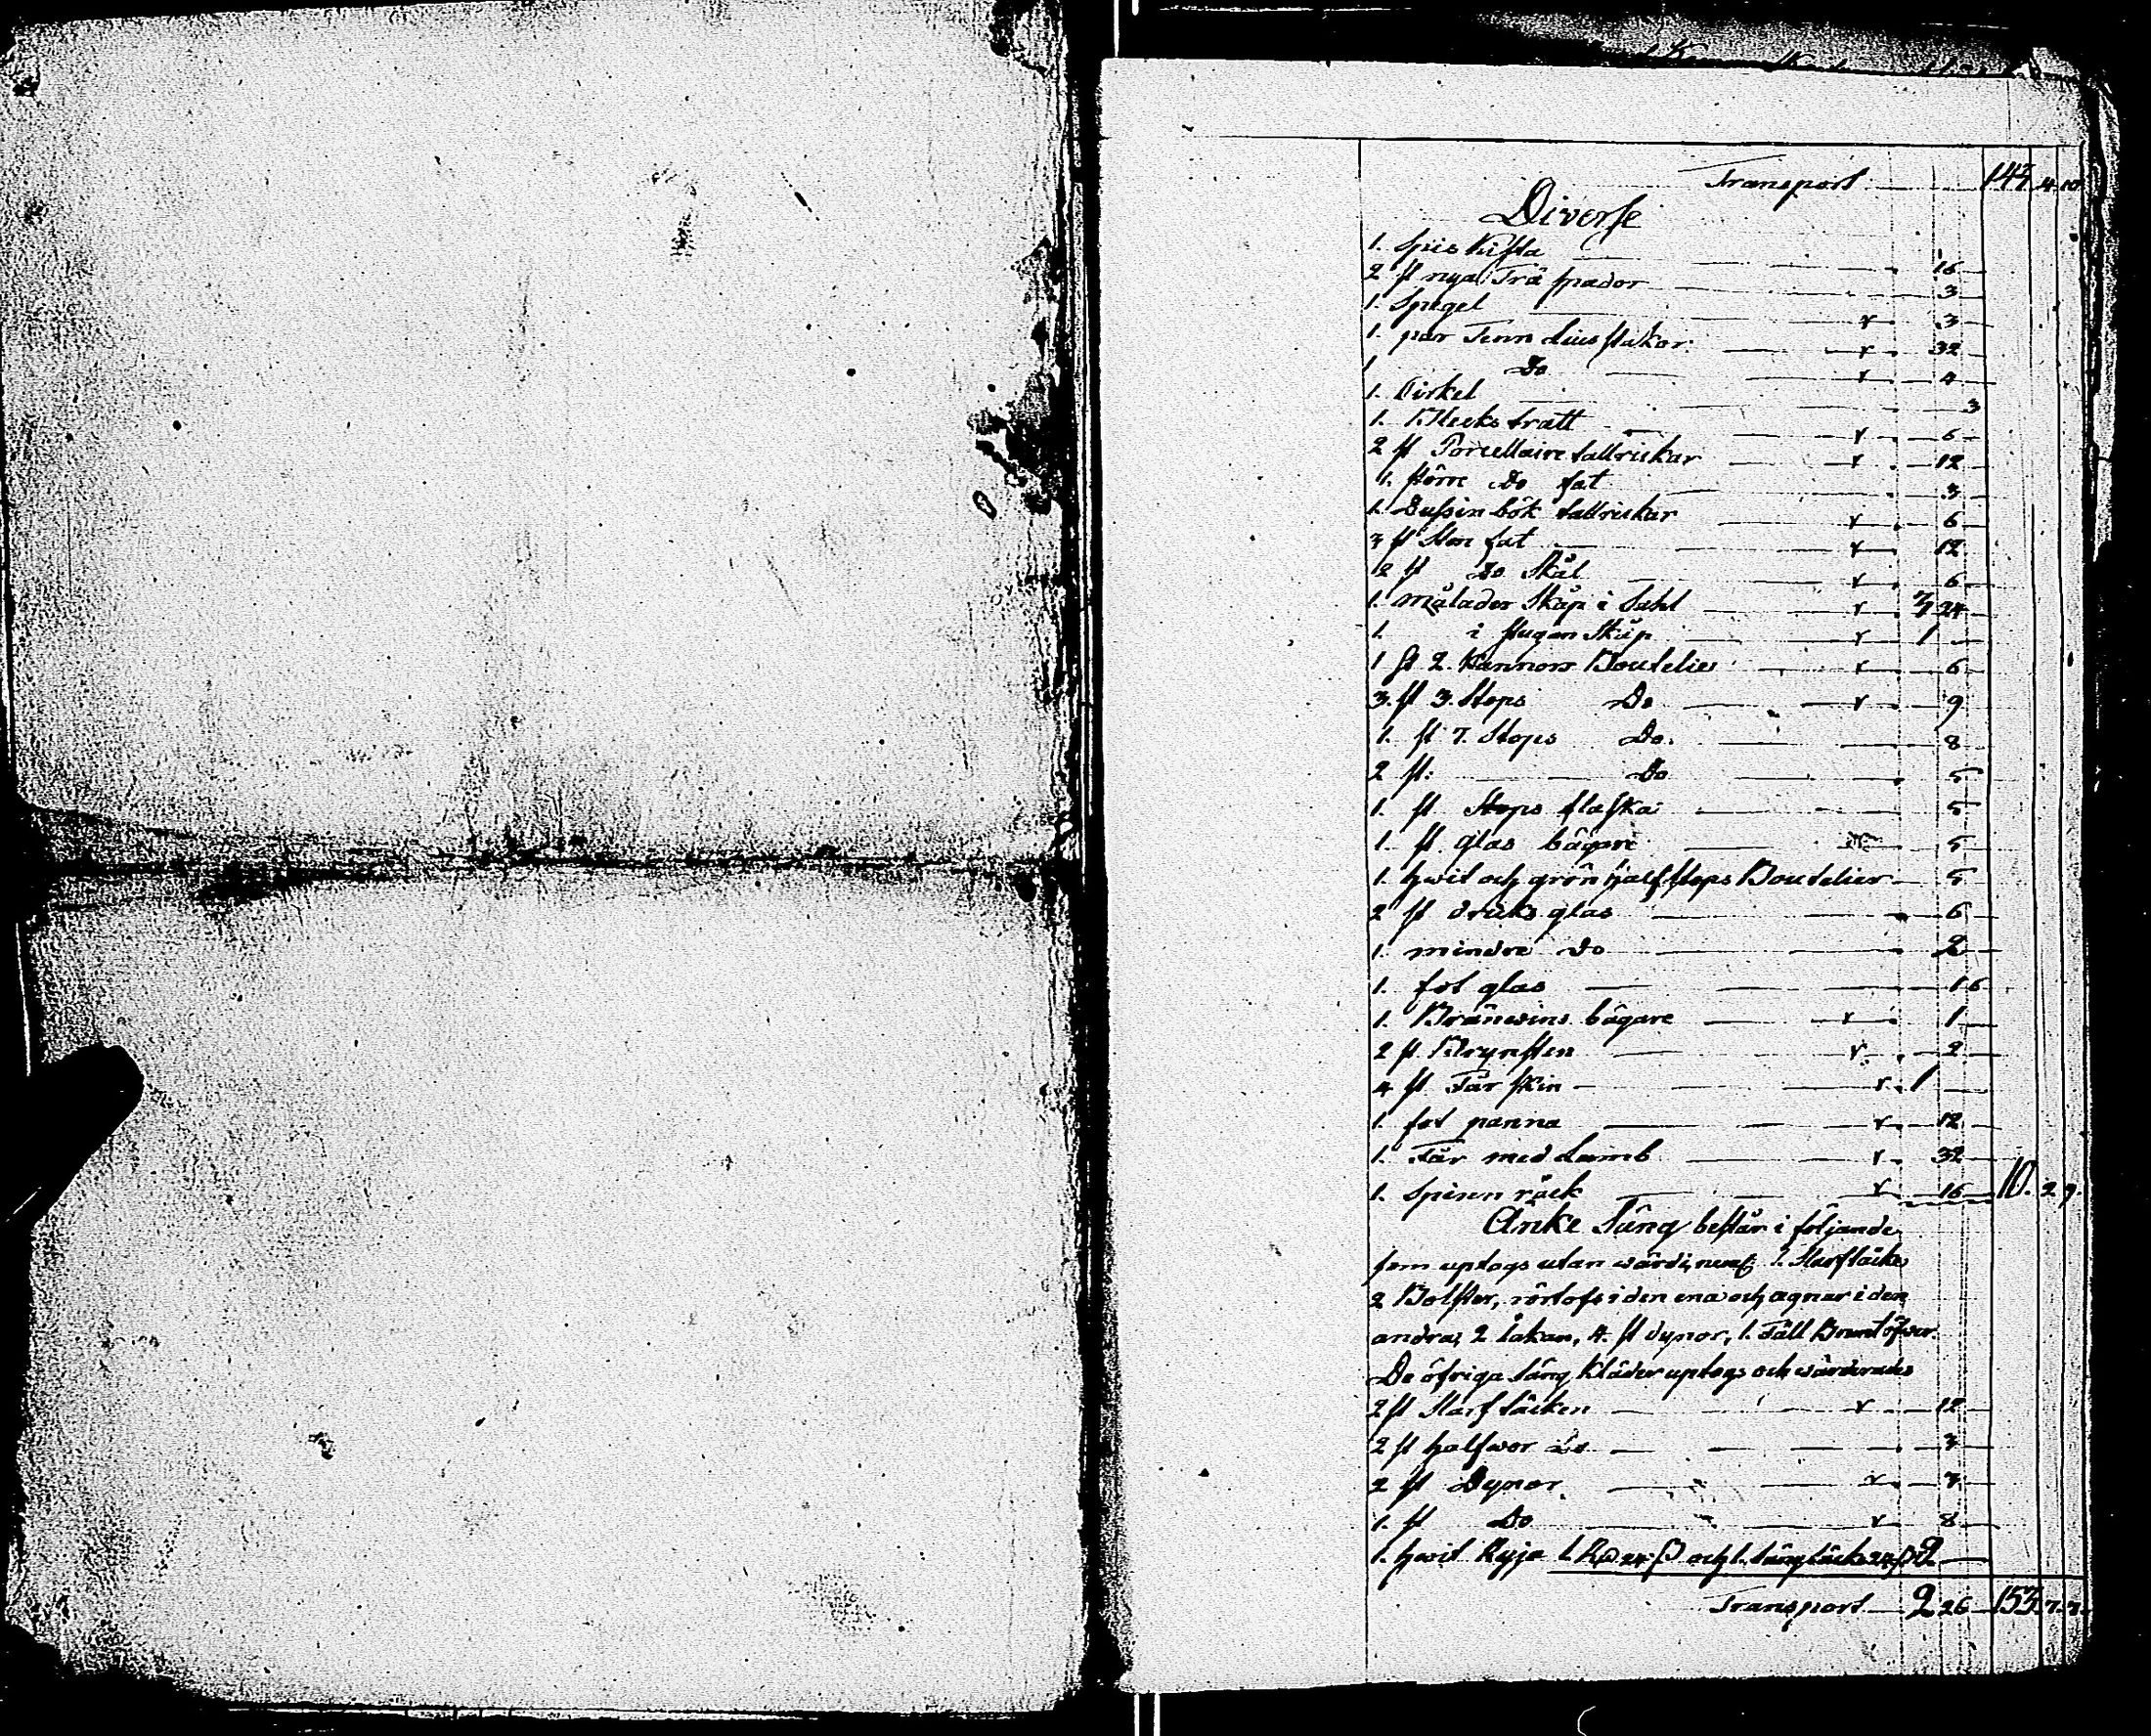 Transport 143 4 10
Diverse
1. Spis Kista 16
2 st nya Trä spador 3
1. Spegel r 3
1. par Tenn Liusstakar r 32
1 Do r 4
1. Cirkel 3
1. Blecks tratt r 6
2 st Porcellaine tallrickar r 12
1. större Do fat 3
1. Dussin bök tallrickar r 6
3 st Sten fat r 12
2 st Do Skål r 6
1. målader Skåp i Sahl r 3 24
1. i stugan Skåp r 1
1 St 2. Kannors Boutelier r 6
3. st 3. Stops Do r 9
1. st 7. Stops Do. 8
2 st: Do 5
1. st Stops flaska 5
1. st glas bägare 5
1. hwit och grön half stops Boutelier 5
2 st dricks glas 6
1. mindre Do 2
1. fot glas 1 6
1. Bränwins bägare r 1
2 st. Brynsten r 2
4 st Får skin r 1
1. fot panna r 12
1. Får med Lamb r 32
1. Spinn råck r 16 10. 2 9.
Änke Säng består i följande
som uptogs utan 1. Starftäcke
2 Bolster, i den ena och agnar i den
andra, 2 Lakan, 4. st dynor, 1. Fäll
De öfriga säng Kläder uptogs och wärderades
2 st Starf täcken r 12
2 st halfwor Do 3
2 st Dynor r 3
1. st Do r 8
1. hwit Ryja 1 R 24 β och 1. sängtäcke 24 β 2
Transport 2 26 153 7 7